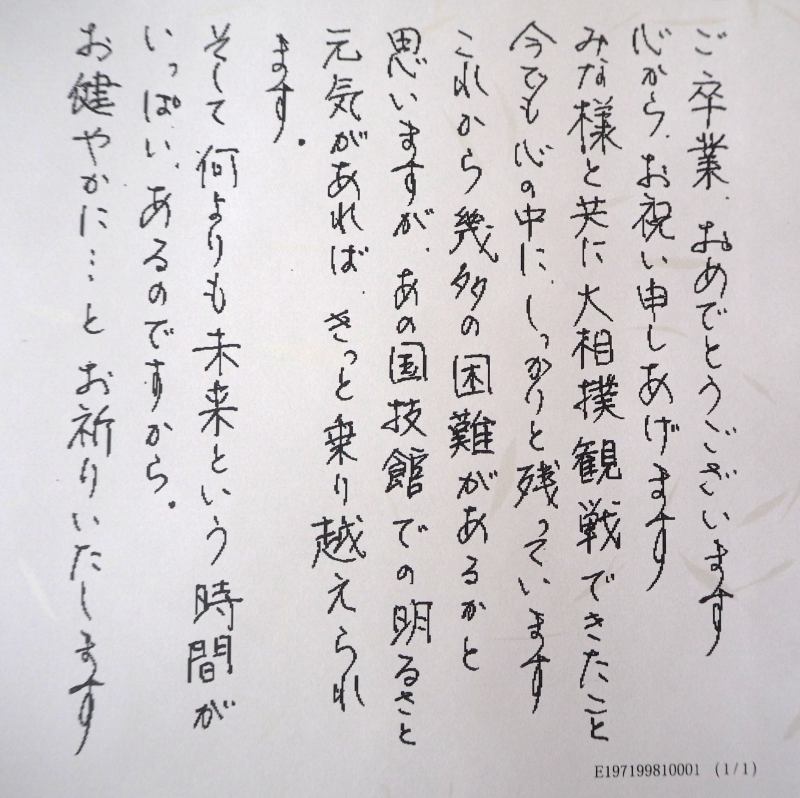 ご卒業、おめでとうございます
心から、お祝い申しあげます
みな様と共に大相撲観戦できたこと
今でも心の中に、しっかりと残っています
これから幾多の困難があるかと
思いますが、あの国技館での明るさと
元気があれば、きっと乗り越えられ
ます。
そして何よりも未来という時間が
いっぱい、あるのですから。
お健やかに…と お祈りいたします
E197199810001 (1/1)